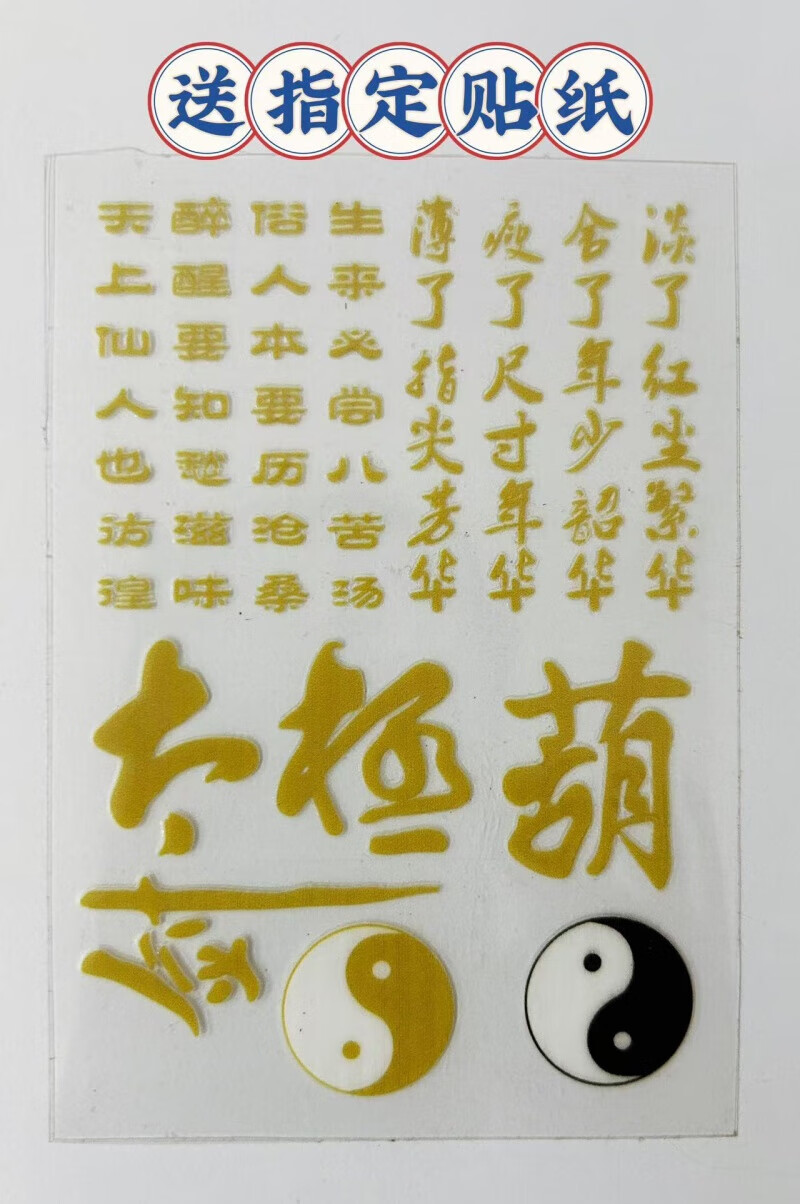 送指定贴纸
淡了红尘繁华
舍了年少韶华
瘦了尺寸年华
薄了指尖芳华
生来必尝八苦汤
俗人本要历沧桑
醉醒要知愁滋味
天上仙人也彷徨
太極
葫
剑